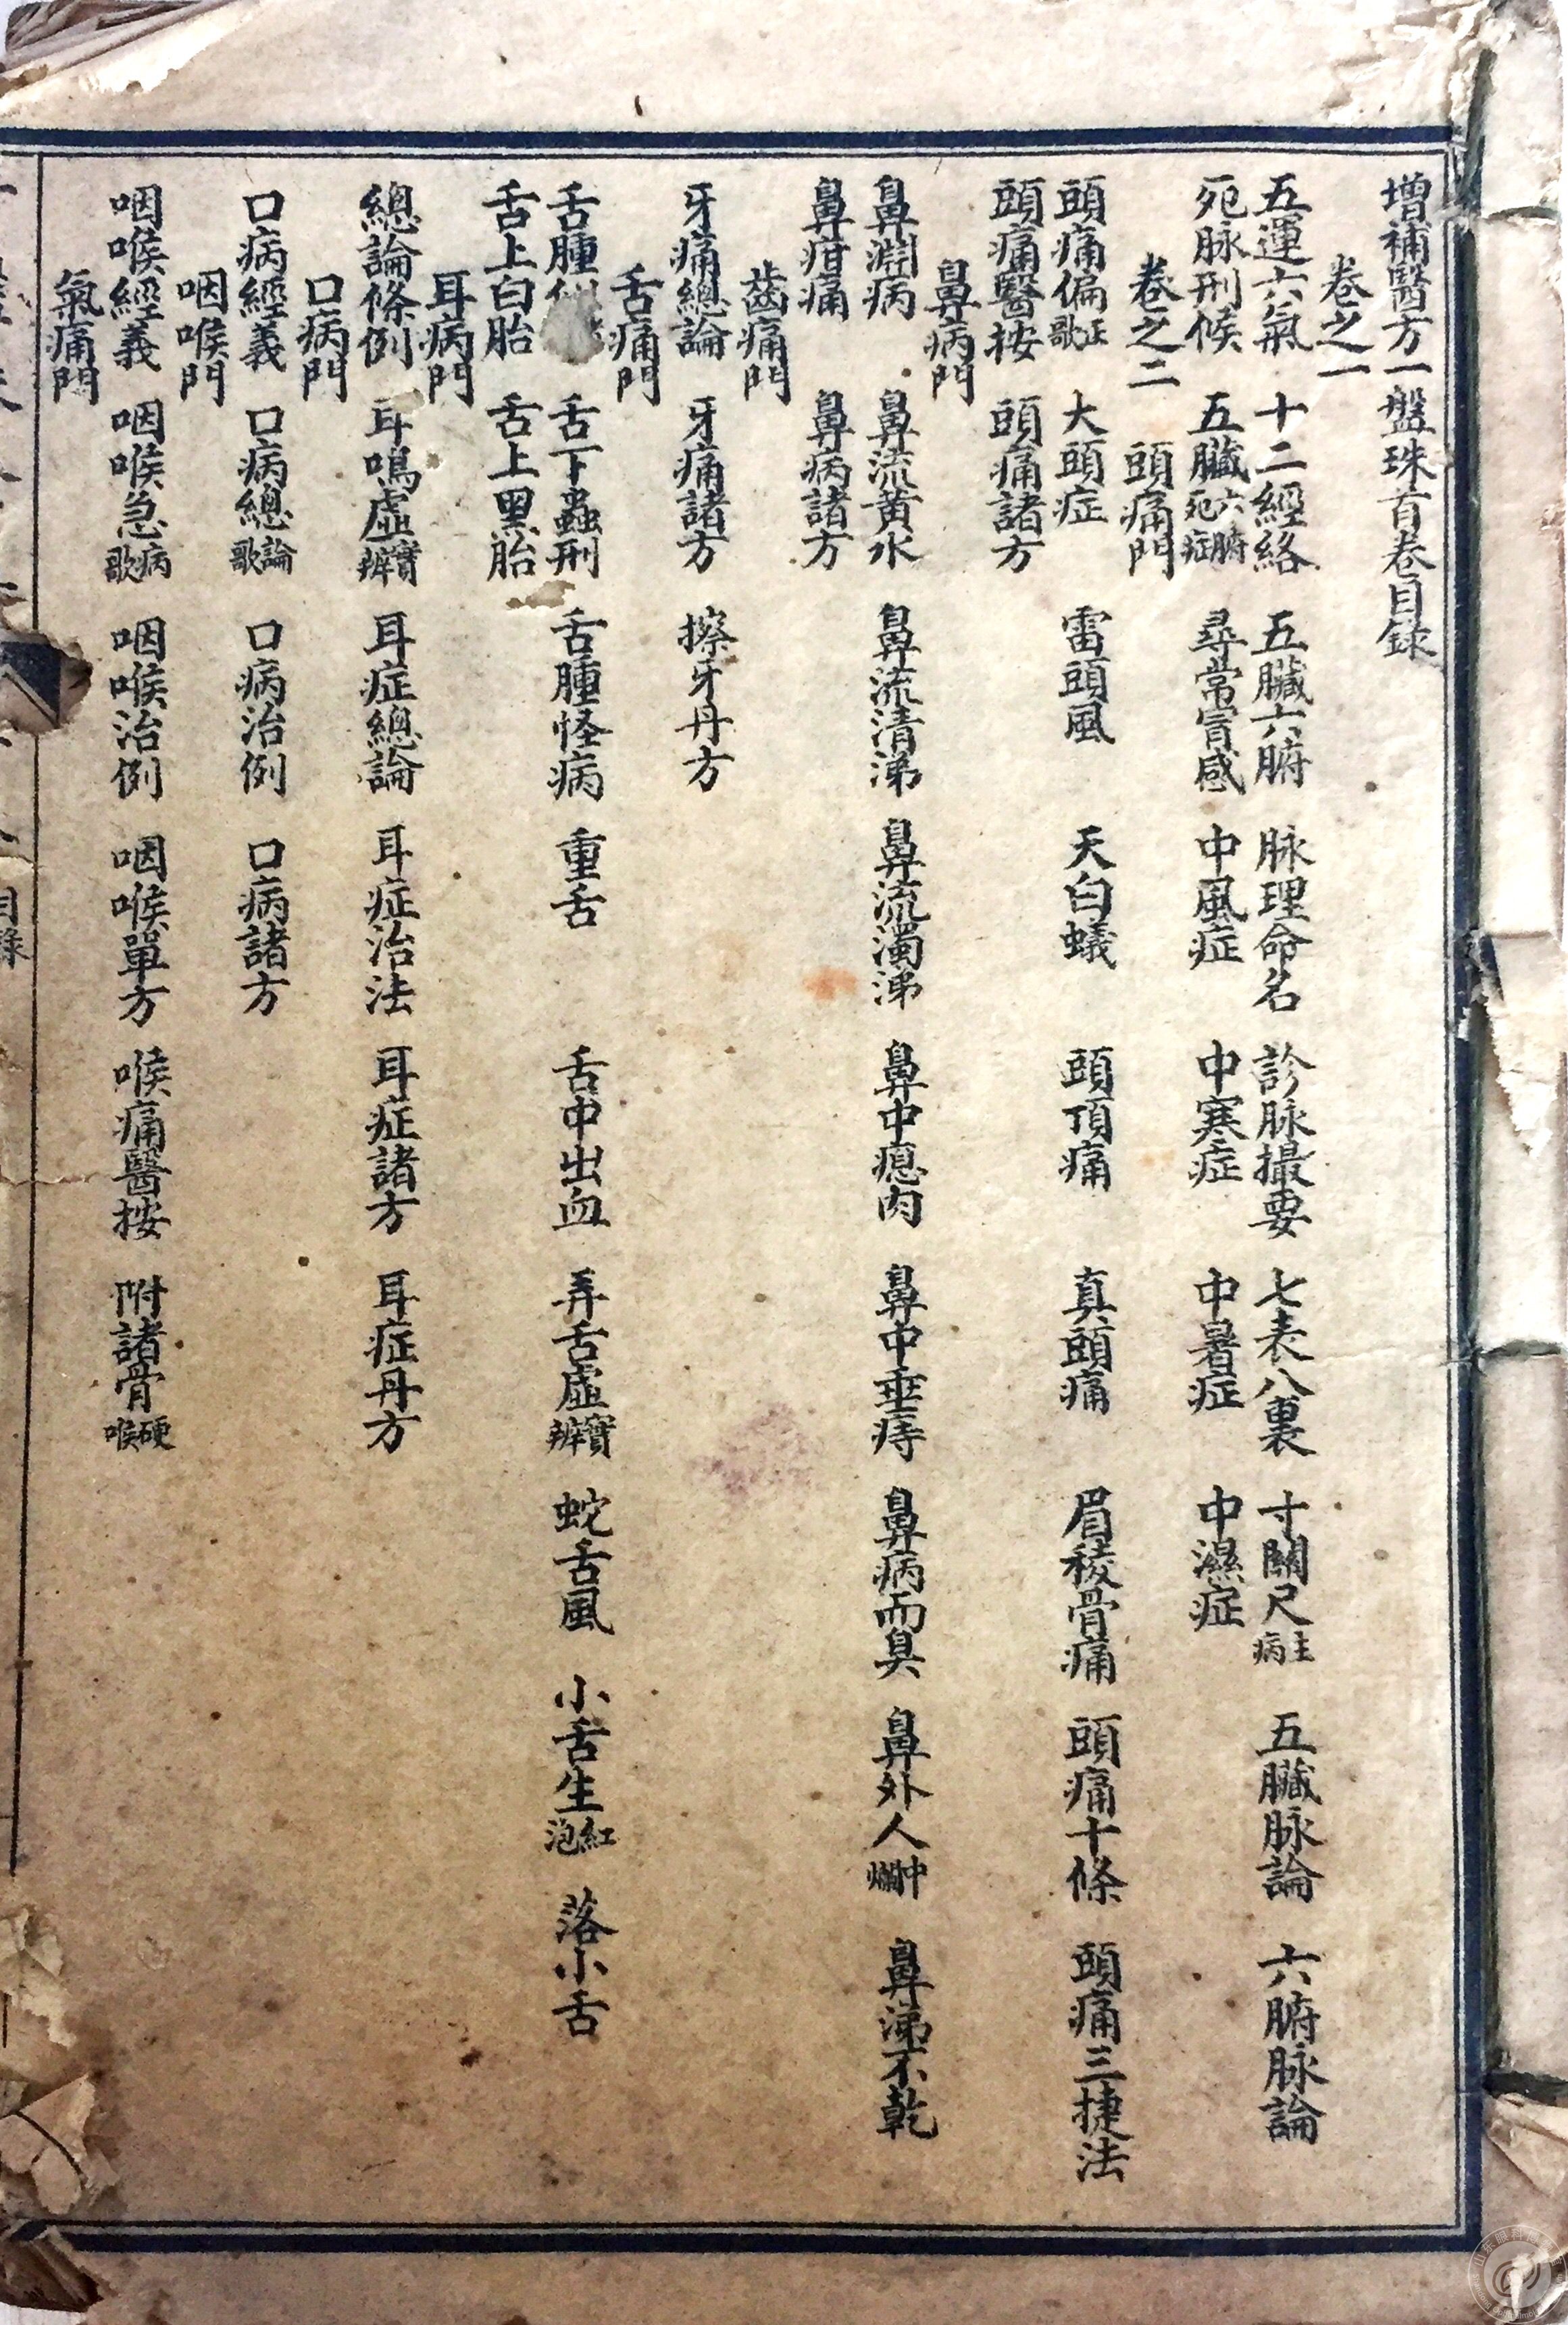 增補醫方一盤珠首卷目錄
卷之一
五運六氣 十二經絡 五臟六腑 脉理命名 診脉撮要 七表八裏 寸關尺主病 五臟脉論 六腑脉論
死脉刑候 五臟六腑死症 尋常冒感 中風症 中寒症 中暑症 中濕症
卷之二 頭痛門
頭痛偏正歌 大頭症 雷頭風 天白蟻 頭頂痛 真頭痛 眉稜骨痛 頭痛十條 頭痛三捷法
頭痛醫按 頭痛諸方
鼻病門
鼻淵病 鼻流黄水 鼻流清涕 鼻流濁涕 鼻中瘜肉 鼻中垂痔 鼻病而臭 鼻外人中爛 鼻涕不乾
鼻疳痛 鼻病諸方
齒痛門
牙痛總論 牙痛諸方 擦牙丹方
舌痛門
舌腫 舌下蟲刑 舌腫怪病 重舌 舌中出血 弄舌虛實辨 蛇舌風 小舌生紅泡 落小舌
舌上白胎 舌上黑胎
耳病門
總論條例 耳鳴虛實辨 耳症總論 耳症治法 耳症諸方 耳症丹方
口病門
口病經義 口病總論歌 口病治例 口病諸方
咽喉門
咽喉經義 咽喉急病歌 咽喉治例 咽喉單方 喉痛醫按 附諸骨硬喉
氣痛門
目錄